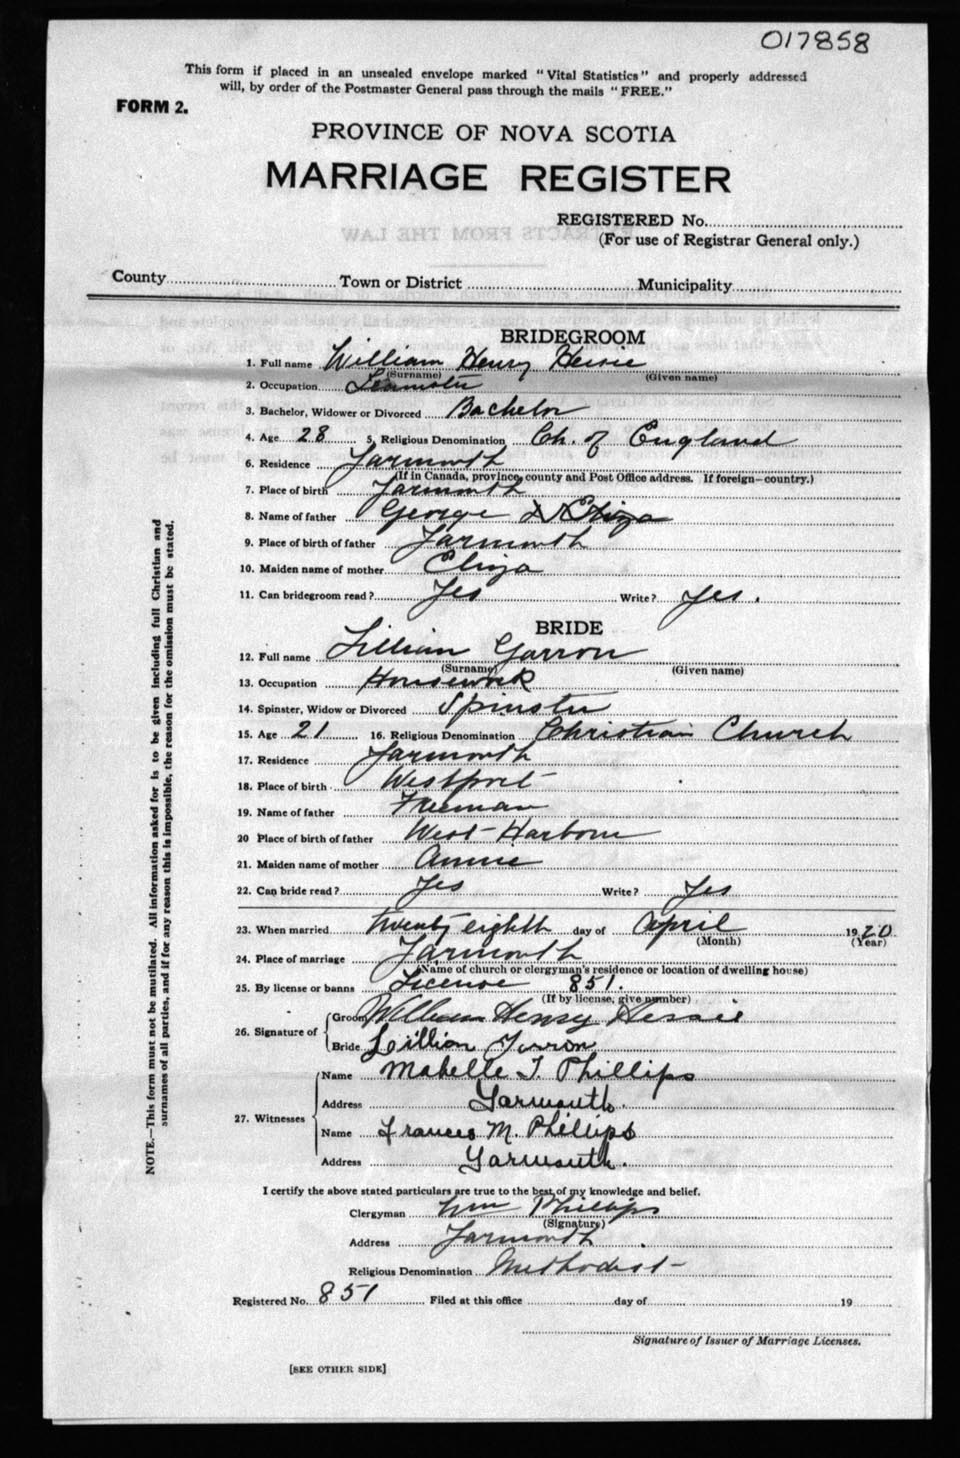 017858
This form if placed in an unsealed envelope marked "Vital Statistics" and properly addressed
will, by order of the Postmaster General pass through the mails "FREE."
FORM 2.
PROVINCE OF NOVA SCOTIA
MARRIAGE REGISTER
REGISTERED No.
(For use of Registrar General only.)
County Town or District Municipality
BRIDEGROOM
1. Full name William Henry
(Surname) (Given name)
2. Occupation Teamster
3. Bachelor, Widower or Divorced Bachelor
4. Age 28 5. Religious Denomination Ch. of England
6. Residence Yarmouth
(If in Canada, province, county and Post Office address. If foreign—country.)
7. Place of birth Yarmouth
8. Name of father George
9. Place of birth of father Yarmouth
10. Maiden name of mother Eliza
11. Can bridegroom read? Yes Write? Yes.
BRIDE
12. Full name Lillian Garron
(Surname) (Given name)
13. Occupation Housework
14. Spinster, Widow or Divorced Spinster
15. Age 21 16. Religious Denomination Christian Church
17. Residence Yarmouth
18. Place of birth Westport
19. Name of father Freeman
20 Place of birth of father West Harbour
21. Maiden name of mother Annie
22. Can bride read? Yes Write? Yes
23. When married twenty eighth day of April 1920
(Month) (Year)
24. Place of marriage Yarmouth
(Name of church or clergyman's residence or location of dwelling house)
25. By license or banns License 851.
(If by license, give number)
26. Signature of Groom William Henry
Bride Lillian
27. Witnesses Name Mabelle T. Phillips
Address Yarmouth.
Name Frances M. Phillips
Address Yarmouth.
I certify the above stated particulars are true to the best of my knowledge and belief.
Clergyman Wm Phillips
(Signature)
Address Yarmouth
Religious Denomination Methodist
Registered No. 851 Filed at this office day of 19
Signature of Issuer of Marriage Licenses.
[SEE OTHER SIDE]
NOTE.—This form must not be mutilated. All information asked for is to be given including full Christian and
surnames of all parties, and if for any reason this is impossible, the reason for the omission must be stated.